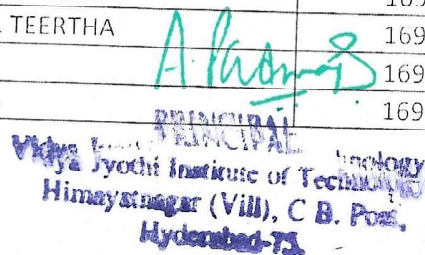 TEERTHA 169
169
169
PRINCIPAL
Vidya Jyothi Institute of Technology
Himayatnagar (Vill), C B. Post,
Hyderabad-75.